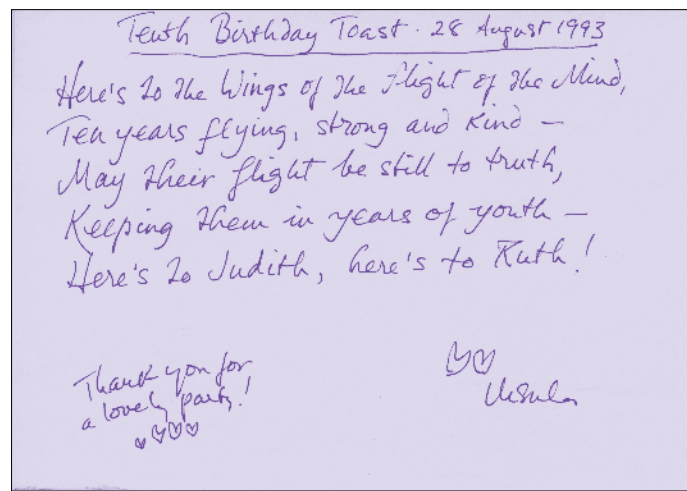 Tenth Birthday Toast · 28 August 1993
Here's to the Wings of the Flight of the Mind,
Ten years flying, strong and kind —
May their flight be still to truth,
Keeping them in years of youth —
Here's to Judith, here's to Ruth!
Thank you for
a lovely party!
Ursula